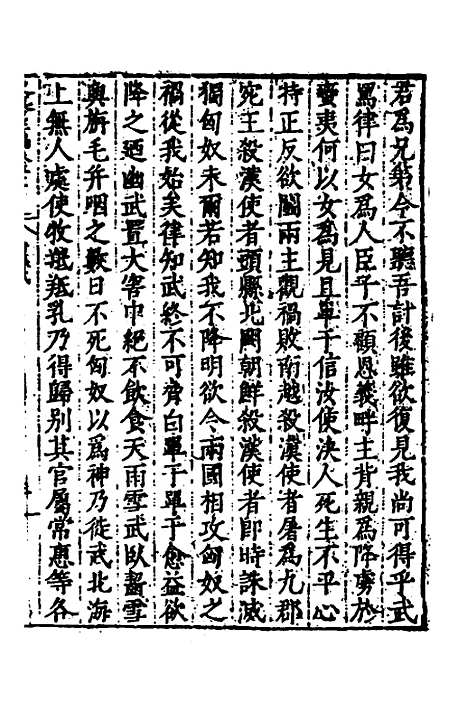 君爲兄弟今不聽吾計後雖欲復見我尚可得乎武
罵律曰女爲人臣子不顧恩義畔主背親爲降虜於
蠻夷何以女爲見且單于信汝使決人死生不平心
持正反欲鬬兩主觀禍敗南越殺漢使者屠爲九郡
宛王殺漢使者頭縣北闕朝鮮殺漢使者即時誅滅
獨匈奴未爾若知我不降明欲令兩國相攻匈奴之
禍從我始矣律知武終不可脅白單于單于愈益欲
降之迺幽武置大窖中絕不飲食天雨雪武臥齧雪
與旃毛并咽之數日不死匈奴以爲神乃徙武北海
上無人處使牧羝羝乳乃得歸別其官屬常惠等各